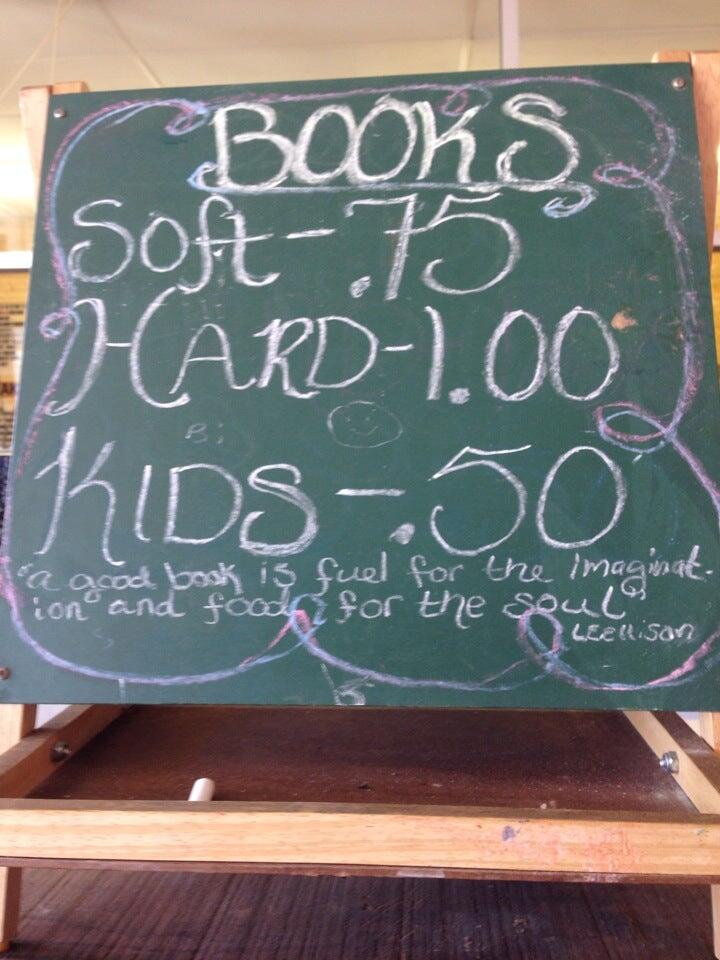 BOOKS
Soft - .75
HARD - 1.00
Bi
KIDS - .50
"a good book is fuel for the imaginat-
ion and food for the soul"
LEellison